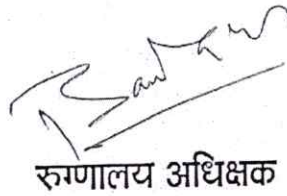 रुग्णालय अधिक्षक